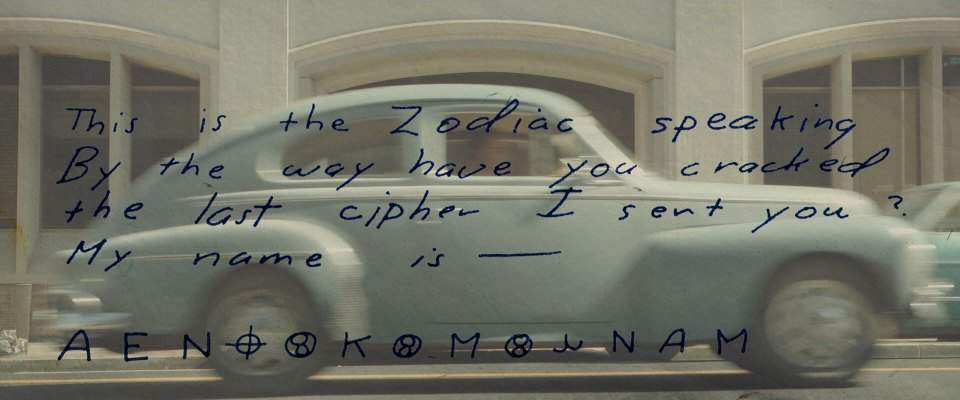 This is the Zodiac speaking
By the way have you cracked
the last cipher I sent you ?
My name is —
A E N ⌖ ⑧ K ⑧ M ⑧ ⅄ N A M